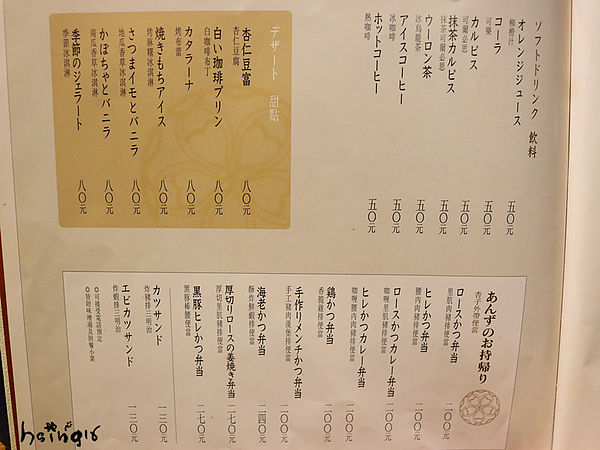 ソフトドリンク 飲料
オレンジジュース 五〇元
柳橙汁
コーラ 五〇元
可樂
カルピス 五〇元
可爾必思
抹茶カルピス 五〇元
抹茶可爾必思
ウーロン茶 五〇元
冰烏龍茶
アイスコーヒー 五〇元
冰咖啡
ホットコーヒー 五〇元
熱咖啡
デザート 甜點
杏仁豆富 八〇元
杏仁豆腐
白い珈琲プリン 八〇元
白咖啡布丁
カタラーナ 八〇元
烤布蕾
焼きもちアイス 八〇元
烤麻糬冰淇淋
さつまイモとバニラ 八〇元
地瓜香草冰淇淋
かぼちゃとバニラ 八〇元
南瓜香草冰淇淋
季節のジェラート 八〇元
季節冰淇淋
あんずのお持帰り
杏子外帶便當
ロースかつ弁当 二〇〇元
里肌肉豬排便當
ヒレかつ弁当 二〇〇元
腰內肉豬排便當
ロースかつカレー弁当 二〇〇元
咖喱里肌肉豬排便當
ヒレかつカレー弁当 二〇〇元
咖喱腰內肉豬排便當
鶏かつ弁当 二〇〇元
香脆雞排便當
手作りメンチかつ弁当 二〇〇元
手工豬肉漢堡排便當
海老かつ弁当 二四〇元
酥炸鮮蝦排便當
厚切りロースの姜焼き弁当 二七〇元
厚切里肌薑燒便當
黒豚ヒレかつ弁当 二七〇元
黑豚棒腰便當
カツサンド 一二〇元
炸豬排三明治
エビカツサンド 一二〇元
炸蝦排三明治
◎可接受電話預定
◎皆附味噌湯及附餐小菜
hsing16